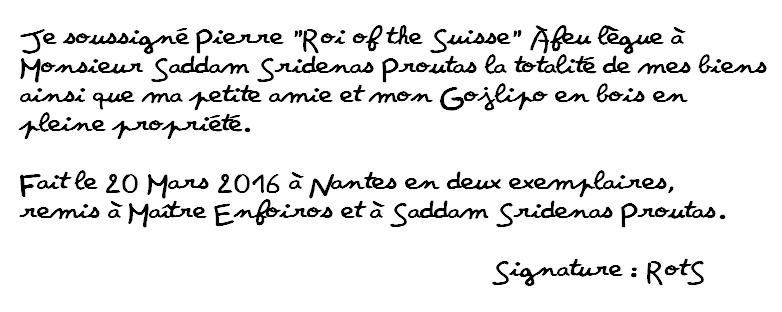 Je soussigné Pierre "Roi of the Suisse" Àfeu lègue à
Monsieur Saddam Sridenas Proutas la totalité de mes biens
ainsi que ma petite amie et mon Gojlipo en bois en
pleine propriété.
Fait le 20 Mars 2016 à Nantes en deux exemplaires,
remis à Maître Enfoiros et à Saddam Sridenas Proutas.
Signature : RotS